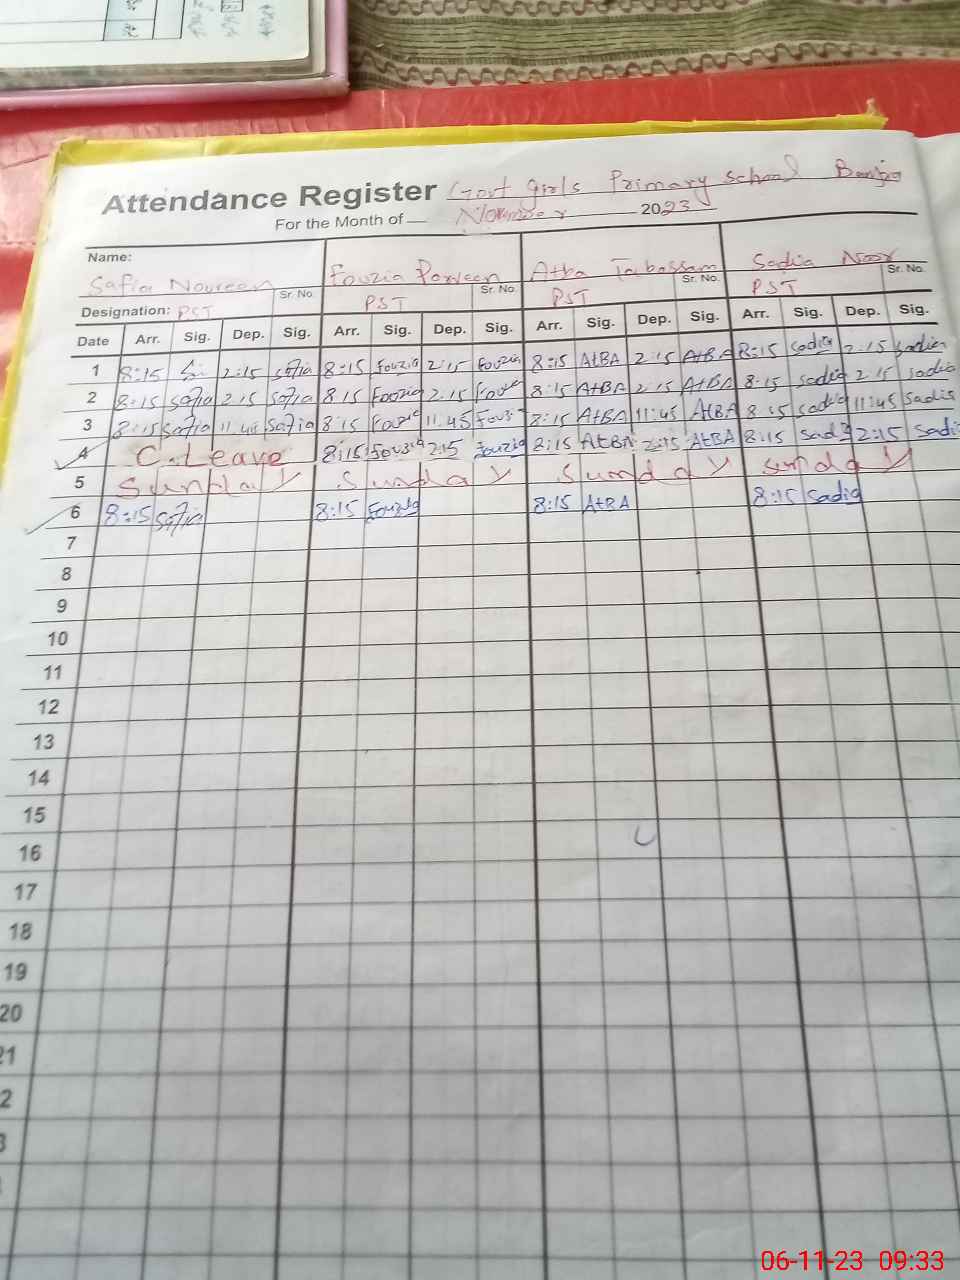 Attendance Register Govt Girls Primary School
For the Month of November 2023
Name: Safia Noureen Fouzia Parveen Atba Tabassam Sadia Noor
Sr. No. Sr. No. Sr. No. Sr. No.
Designation: PST PST PST PST
Date Arr. Sig. Dep. Sig. Arr. Sig. Dep. Sig. Arr. Sig. Dep. Sig. Arr. Sig. Dep. Sig.
1 8:15 2:15 safia 8:15 Fouzia 2:15 Fouzia 8:15 AtBA 2:15 AtBA 8:15 sadia 2:15 sadia
2 8:15 safia 2 15 safia 8 15 Fouzia 2.15 8:15 AtBA 2 15 AtBA 8.15 sadia 2 15 sadia
3 8:15 safia 11.45 safia 8 15 11.45 8:15 AtBA 11:45 AtBA 8 15 sadia 11:45 sadia
4 C.Leave 8:15 Fouzia 2:15 Fouzia 8:15 AtBA 2:15 AtBA 8:15 2:15
5 Sunday Sunday Sunday Sunday
6 8:15 safia 8:15 Fouzia 8:15 AtBA 8:15 Sadia
7
8
9
10
11
12
13
14
15
16
17
18
19
20
06-11-23 09:33